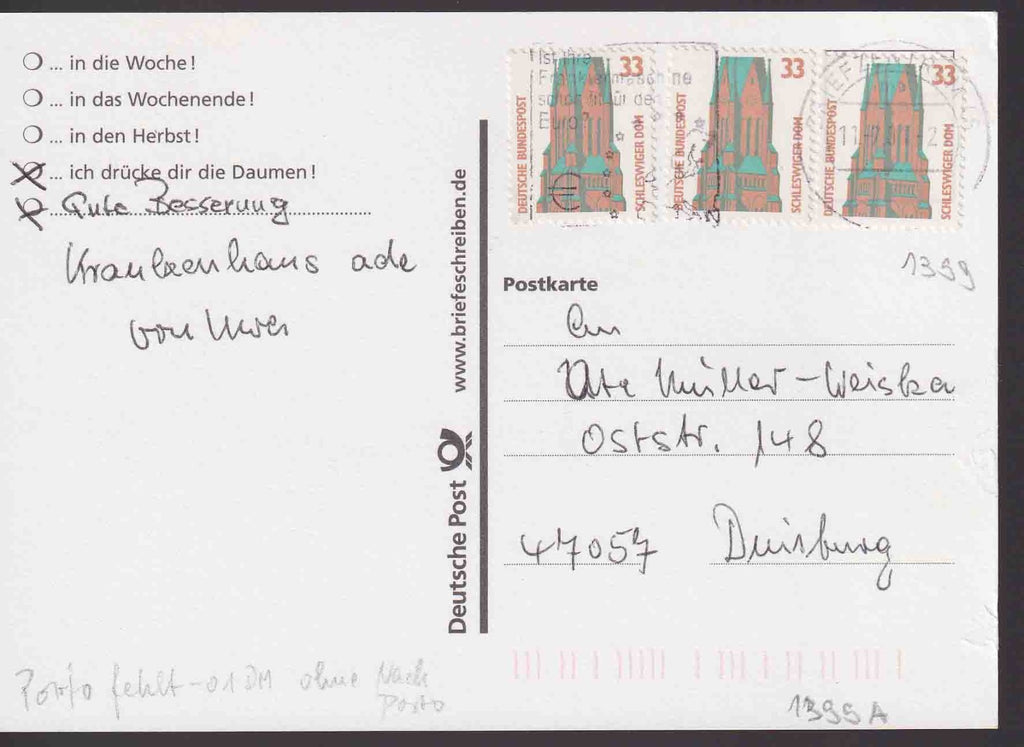 ... in die Woche!
... in das Wochenende!
... in den Herbst!
... ich drücke dir die Daumen!
Gute Besserung
Krankenhaus ade
von Uwe
www.briefeschreiben.de
Deutsche Post
Ist Ihre
Frankiermaschine
schon fit für den
Euro?
33
DEUTSCHE BUNDESPOST
SCHLESWIGER DOM
33
DEUTSCHE BUNDESPOST
SCHLESWIGER DOM
33
DEUTSCHE BUNDESPOST
SCHLESWIGER DOM
BRIEFZENTRUM
1399
Postkarte
An
Ute Müller-Weiska
Oststr. 148
47057 Duisburg
Porto fehlt -01 DM ohne Nach
Porto
1399 A